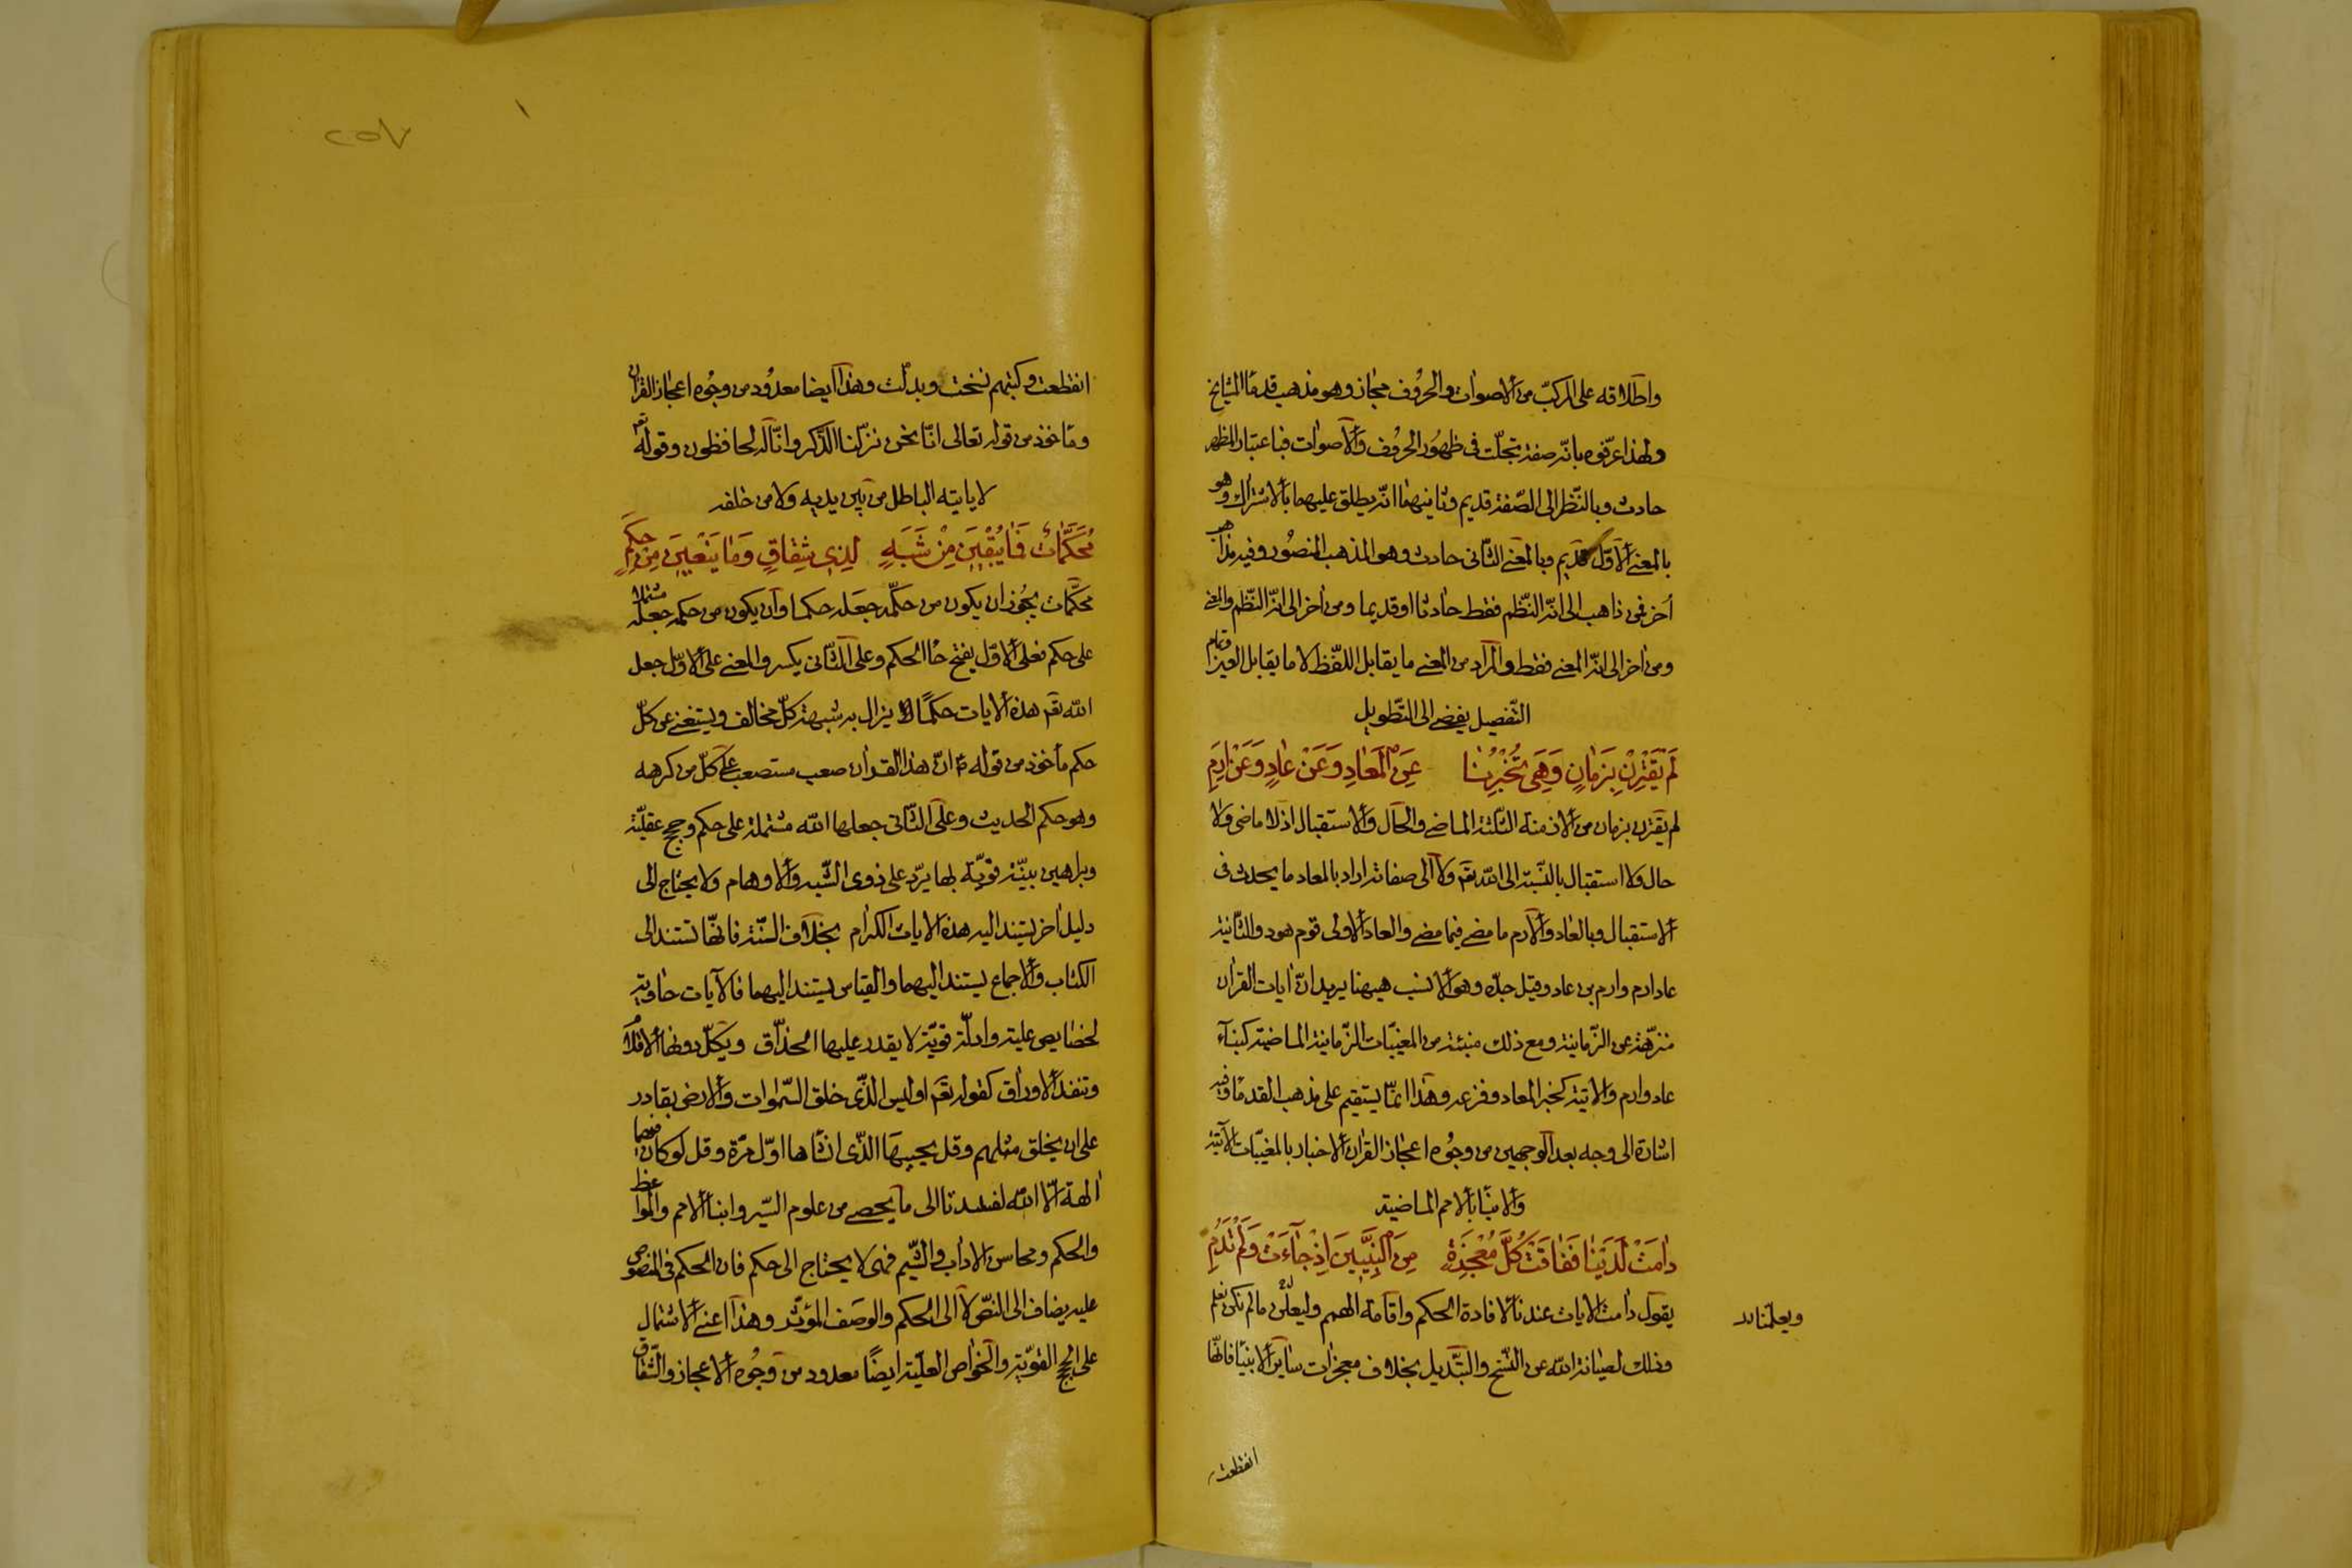 واطلاقه على المركب من الاصوات والحروف مجاز وهو مذهب قدماء المشايخ
ولهذا عرّفوه بانّه صفة تجلّت فى ظهور الحروف والاصوات فباعتبار المظهر
حادث وبالنّظر الى الصّفة قديم وثانيهما انّه يطلق عليهما بالاشتراك وهو
بالمعنى الاوّل قديم وبالمعنى الثّانى حادث وهو المذهب المنصور وفيه مذاهب
أخر فمن ذاهب الى انّه النّظم فقط حادثا او قديما ومن اخر الى انّه النّظم والمعنى
ومن اخر الى انّه المعنى فقط والمراد من المعنى ما يقابل اللّفظ لا ما يقابل العين وتمام
التّفصيل يفضى الى التّطويل
لَمْ يَقْتَرِنْ بِزَمانٍ وَهْىَ تُخْبِرُنٰا عَنِ الْمَعَادِ وَعَنْ عٰادٍ وَعَنْ اِرَمِ
لم يقترن بزمان من الازمنة الثلثة الماضى والحال والاستقبال اذ لا ماضى ولا
حال ولا استقبال بالنّسبة الى الله تع ولا الى صفاته اراد بالمعاد ما يحدث فى
الاستقبال وبالعاد والارم ما مضى فيما مضى والعاد الاولى قوم هود والثّانية
عاد ارم وارم بن عاد وقيل جدّه وهو الانسب هيهنا يريد انّ ايات القران
منزّهة عن الزّمانية ومع ذلك منبئة من المغيّبات الزّمانية الماضية كنبآء
عاد وارم والاتية كخبر المعاد وفزعه وهذا انّما يستقيم على مذهب القدماء وفيه
اشارة الى وجه بعد الوجهين من وجوه اعجاز القران الاخبار بالمغيّبات الاتية
والانباء بالامم الماضية
دٰامَتْ لَدَيْنٰا فَفٰاقَتْ كُلَّ مُعْجِزَةٍ مِنَ النَّبِيّينَ اِذْ جٰآءَتْ وَلَمْ تَدُمِ
يقول دامت الايات عندنا لافادة الحكم واقامة الهمم وليعلّمن ما لم نكن نعلم
ويعلّمنا
وذلك لصيانة الله عن النّسخ والتّبديل بخلاف معجزات ساير الانبياء فانّها
انقطعت
٢٥٧
انقطعت وكتبهم نسخت وبدلت وهذا ايضا معدود من وجوه اعجاز القران
ومأخوذ من قوله تعالى انّا نحن نزّلنا الذّكر وانّا له لحافظون وقوله تع
لا يايتيه الباطل من بين يديه ولا من خلفه
مُحَكَّمٰاتٌ فَمٰا يُبْقِينَ مِنْ شُبَهٍ لِذِى شِقٰاقٍ وَمٰا يَبْغِينَ مِنْ حَكَمِ
محكّمات يجوز ان يكون من حكّمه جعله حكما وان يكون من حكمه جعله مشتملا
على حكم فعلى الاوّل يفتح حاء الحكم وعلى الثّانى يكسر والمعنى على الاوّل جعل
الله تع هذه الايات حكمًا يزال به شبهة كلّ مخالف ويستغنى عن كلّ
حكم مأخوذ من قوله انّ هذا القران صعب مستصعب على كلّ من كرهه
وهو حكم الحديث وعلى الثّانى جعلها الله مشتملة على حكم وحجج عقليّة
وبراهين بيّنة قويّة بها يردّ على ذوى الشّبه والاوهام ولا يحتاج الى
دليل اخر يستند اليه هذه الايات الكرام بخلاف السّنّة فانّها تستند الى
الكتاب والاجماع يستند اليهما والقياس يستند اليهما فالآيات حاوية
لخصايص علية وادلّة قويّة لا يقدر عليها الحذّاق ويكلّ دونها الاقلام
وتنفد الاوراق كقوله تع اوليس الّذى خلق السّموات والارض بقادر
على ان يخلق مثلهم وقل يحييها الّذى انشاها اوّل مرّة وقل لو كان فيهما
الهة الّا الله لفسدتا الى ما يحصى من علوم السّير وانباء الامم والمواعظ
والحكم ومحاسن الاداب والشّيم فهى لا يحتاج الى حكم فان الحكم فى المنصوص
عليه يضاف الى النصّ لا الى الحكم والوصف المؤثّر وهذا اعنى الاشتمال
على الحجج القويّة والخواص العليّة ايضًا معدود من وجوه الاعجاز والشّقاق